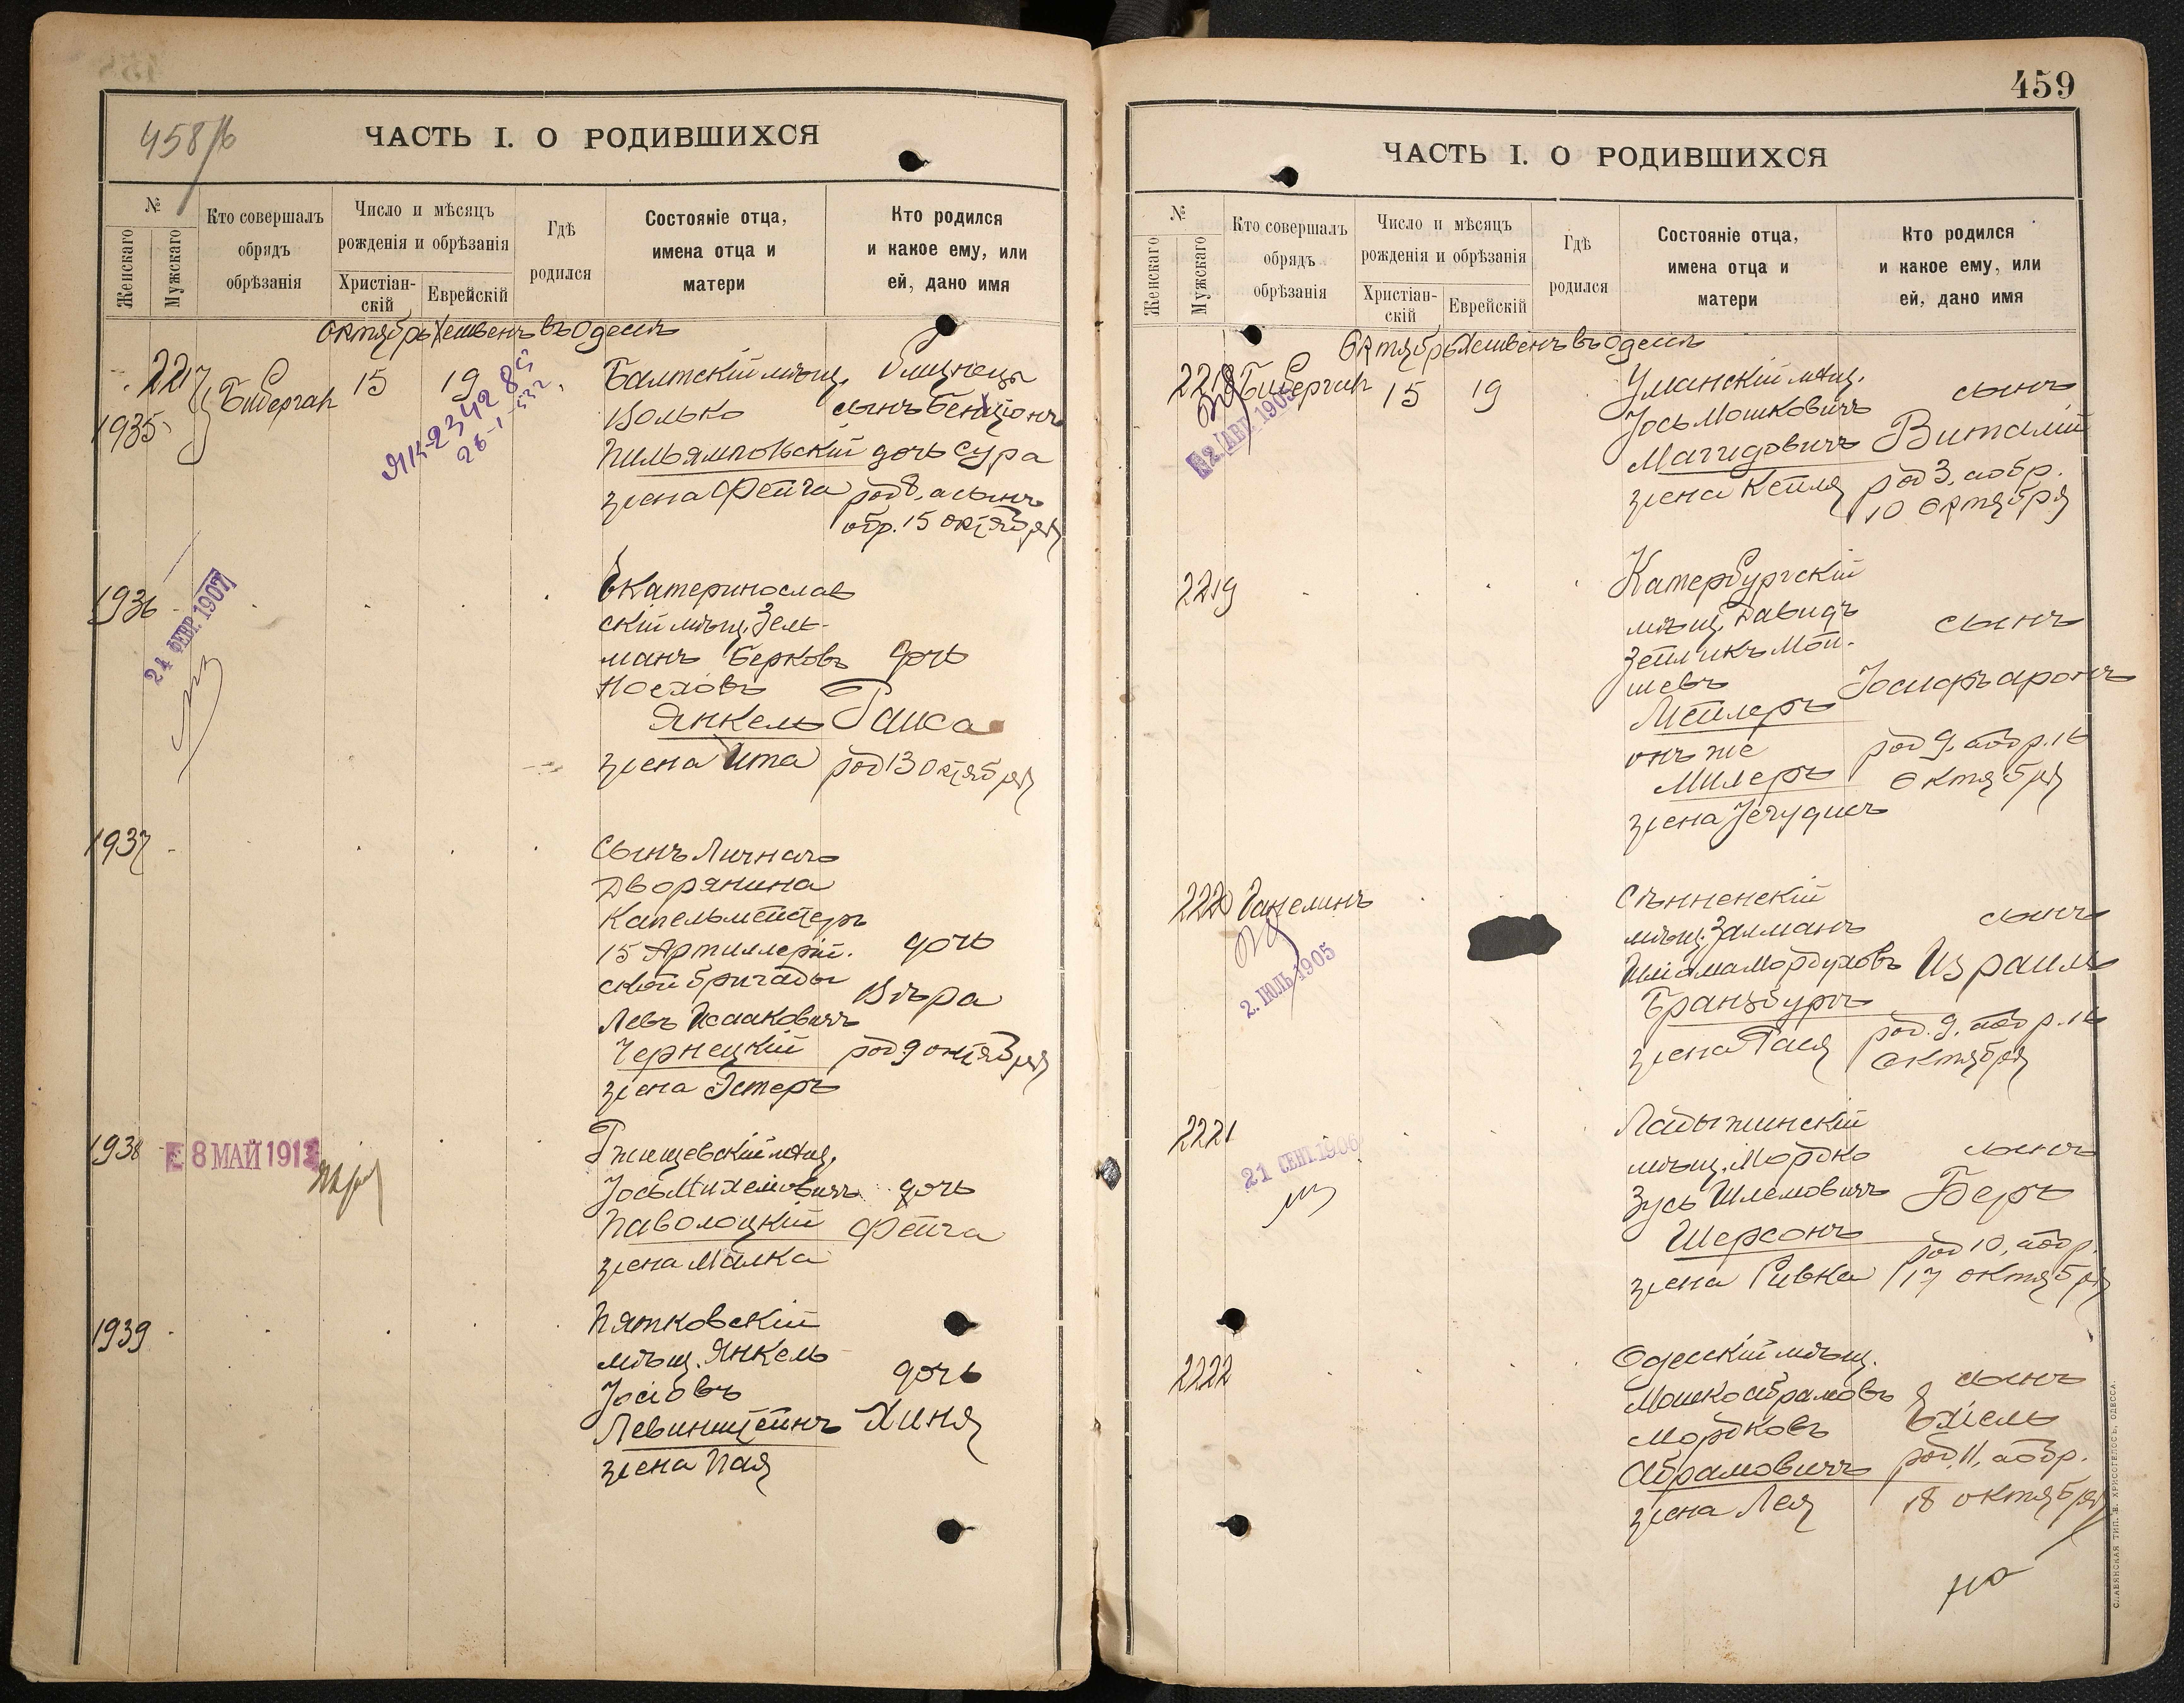 458/б
ЧАСТЬ I. О РОДИВШИХСЯ
№
Женскаго
Мужскаго
Кто совершалъ
обрядъ
обрѣзанія
Число и мѣсяцъ
рожденія и обрѣзанія
Христіан-
скій
Еврейскій
Гдѣ
родился
Состояніе отца,
имена отца и
матери
Кто родился
и какое ему, или
ей, дано имя
Октябрь Хешвенъ въ Одессѣ
2217
1935
Бибергал 15 19
ЯК-234285
26-1-
Балтскій мѣщ.
Волько
Пильямповскій
жена Фейга
близнецы
сынъ Бенціонъ
дочь Сура
род 8, а сынъ
обр. 15 октября
1936
21 ФЕВР. 1907
Екатеринослав
скій мѣщ. Зель-
манъ Берковъ
Носховъ
Янкель
жена Ита
дочь
Раиса
род 13 октября
1937
Сынъ Личнаго
Дворянина
Капельмейстеръ
15 Артиллерій.
ской бригады
Левъ Исааковичъ
Чернецкій
жена Эстеръ
дочь
Вѣра
род 9 октября
1938
8 МАЙ 1913
Ржищевскій мѣщ.
Јось Михелевичъ
Паволоцкій
жена Малка
дочь
Фейга
1939
Пятковскій
мѣщ. Янкель
Јосіовъ
Левинштейнъ
жена Пая
дочь
Хиня
459
ЧАСТЬ I. О РОДИВШИХСЯ
№
Женскаго
Мужскаго
Кто совершалъ
обрядъ
обрѣзанія
Число и мѣсяцъ
рожденія и обрѣзанія
Христіан-
скій
Еврейскій
Гдѣ
родился
Состояніе отца,
имена отца и
матери
Кто родился
и какое ему, или
ей, дано имя
Октябрь Хешвенъ въ Одессѣ
2218 Бибергал 15 19
2 АВГ 1905
Уманскій мѣщ.
Јось Мошковичъ
Магидовичъ
жена Кейля
сынъ
Виталій
род 3, а обр.
10 октября
2219
Катербургскій
мѣщ. Давидъ
Зейликъ Мой-
шевъ
Мейлеръ
онъ же
Милеръ
жена Јегудисъ
сынъ
Јосифъ Аронъ
род 9, а обр. 16
октября
2220 Ганелинъ
2. ІЮЛЬ 1905
Сѣнненскій
мѣщ. Залманъ
Шліома Мордуховъ
Гранзбургъ
жена Рася
сынъ
Израиль
род. 9, а обр. 16
октября
2221
21 СЕНТ. 1906
Ладыжинскій
мѣщ. Мордко
Зусь Шлемовичъ
Шерсонъ
жена Ривка
сынъ
Беръ
род 10, а обр.
17 октября
2222
Одесскій мѣщ.
Мошко Абрамовъ
Мордковъ
Абрамовичъ
жена Лея
сынъ
Ехіель
род, 11, а обр.
18 октября
СЛАВЯНСКАЯ ТИП. Н. ХРИСОГЕЛОСЪ, ОДЕССА.